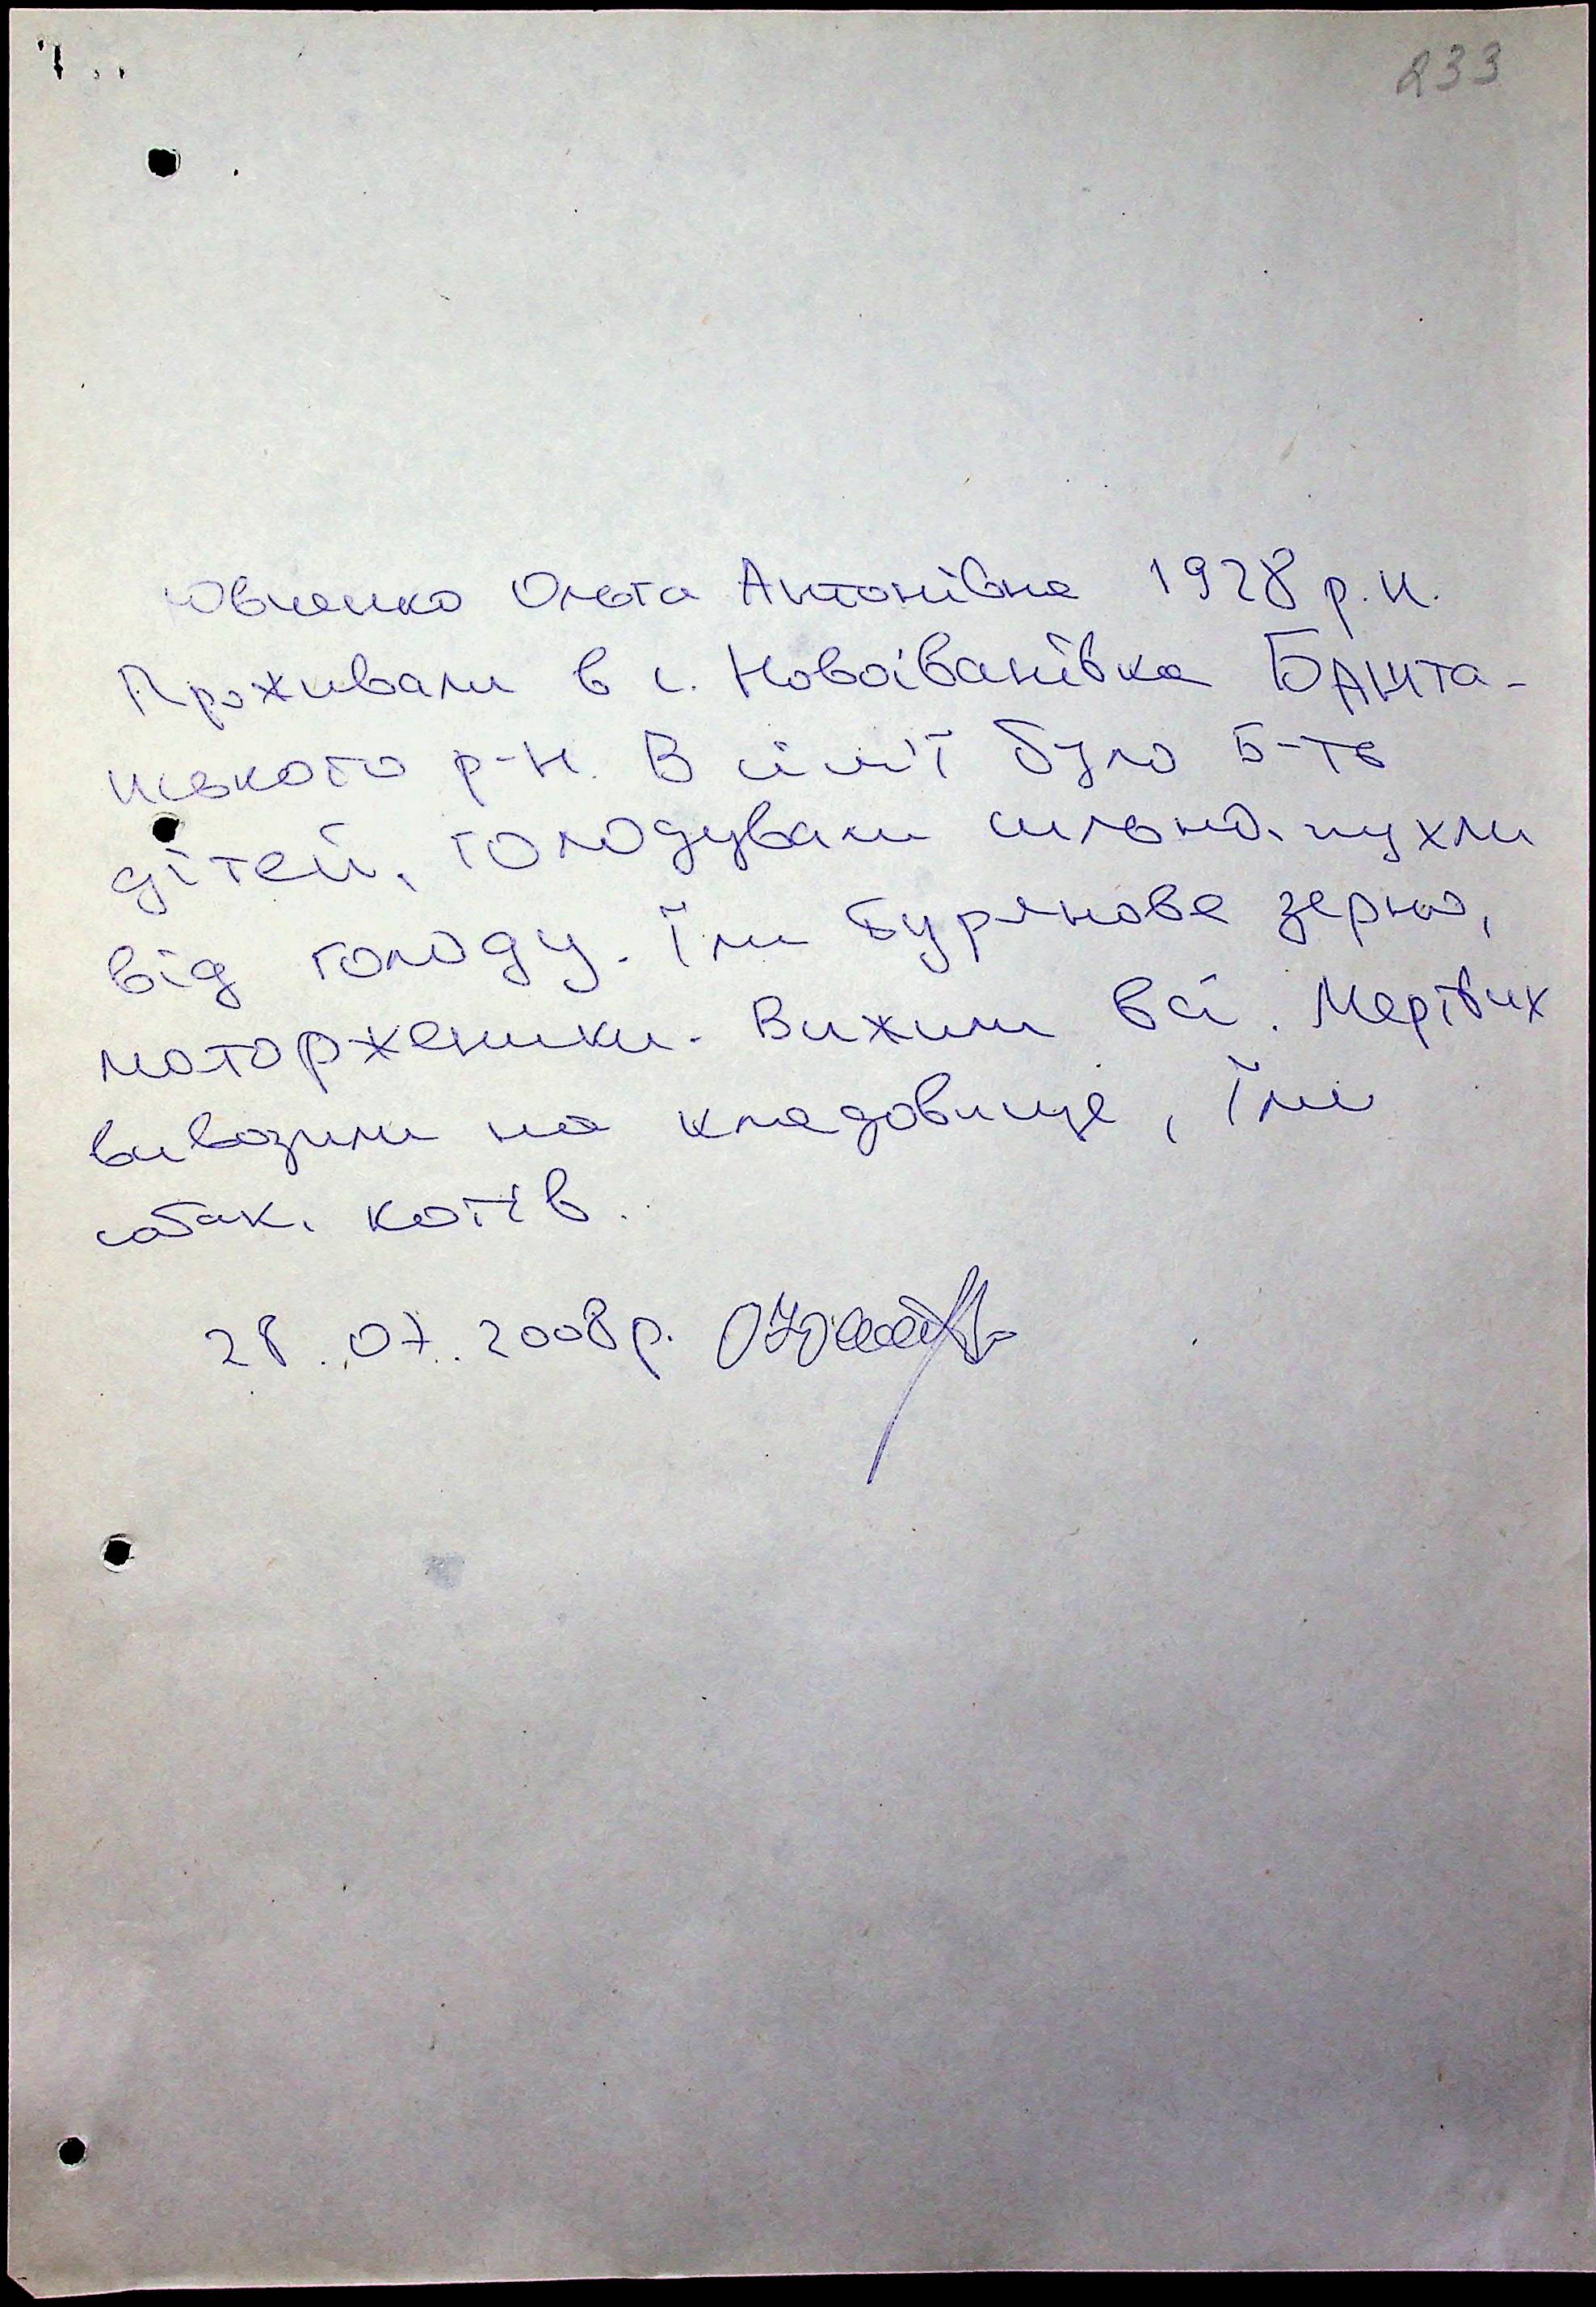 233
Ювченко Ольга Антонівна 1928 р.н.
Проживали в с. Новоіванівка Башта-
нського р-н. В сім'ї було 5-ть
дітей, голодували сильно, пухли
від голоду. Їли бурянове зерно,
моторженики. Вижили всі. Мертвих
вивозили на кладовище, їли
собак, котів.
28.07.2008р.